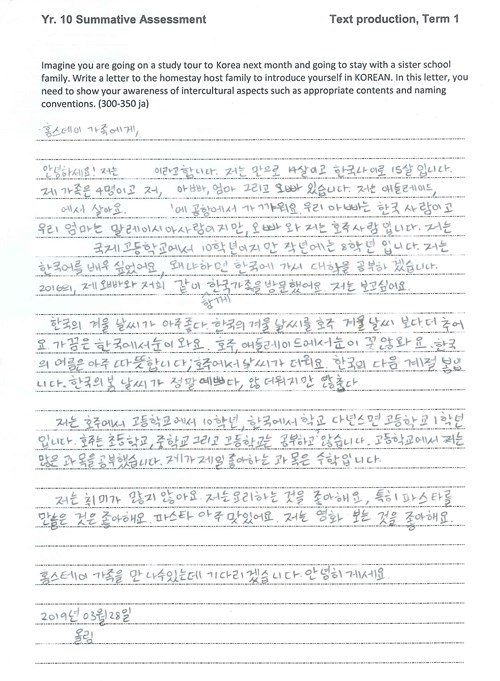 Yr. 10 Summative Assessment Text production, Term 1
Imagine you are going on a study tour to Korea next month and going to stay with a sister school
family. Write a letter to the homestay host family to introduce yourself in KOREAN. In this letter, you
need to show your awareness of intercultural aspects such as appropriate contents and naming
conventions. (300-350 ja)
홈스테이 가족에게,
안녕하세요! 저는 이라고합니다. 저는 만으로 14살이고 한국나이로 15살 입니다.
제 가족은 4명이고 저, 아빠, 엄마 그리고 오빠 있습니다. 저는 애들레이드,
에서 살아요. 에 공항에서 가까워요. 우리 아빠는 한국 사람이고
우리 엄마는 말레이시아사람이지만, 오빠와 저는 호주사람입니다. 저는
국제고등학교에서 10학년이지만 작년에는 8학년 입니다. 저는
한국어를 배우 싶었어요, 왜냐하면 한국에 가서 대학을 공부하 겠습니다.
2016의, 제 오빠와 저희 같이 한국가족을 방문했어요. 저는 보고싶어요.
함께
한국의 겨울 날씨가 아주좋다. 한국의겨울 날씨를 호주 겨울 날씨 보다더 추어
요. 가끔은 한국에서눈이 와요. 호주, 애들레이드에서눈이 꼭않와요. 한국
의 여름은 아주 따뜻합니다, 호주에서 날씨가 더워요. 한국의 다음 계절 봄입
니다. 한국의봄 날씨가 정말 예쁘다, 않 더위지만 않춥다.
저는 호주에서 고등학교에서 10학년, 한국에서 학교 다년스면 고등학교 1학년
입니다. 호주는 초등학교, 중학교 그리고 고등학교는 공부하고 않습니다. 고등학교에서 저는
많은 과목을 공부했습니다. 제가 제일 좋아하는 과목은 수학 입니다.
저는 취미가 많지 않아요. 저는 요리하는 것을 좋아해요, 특히 파스타를
만들은 것은 좋아해요. 파스타 아주 맛있어요. 저는 영화 보는 것을 좋아해요.
홈스테이 가족을 만 나수있는데 기다리겠습니다. 안녕히 게세요.
2019년 03월 28일
올림